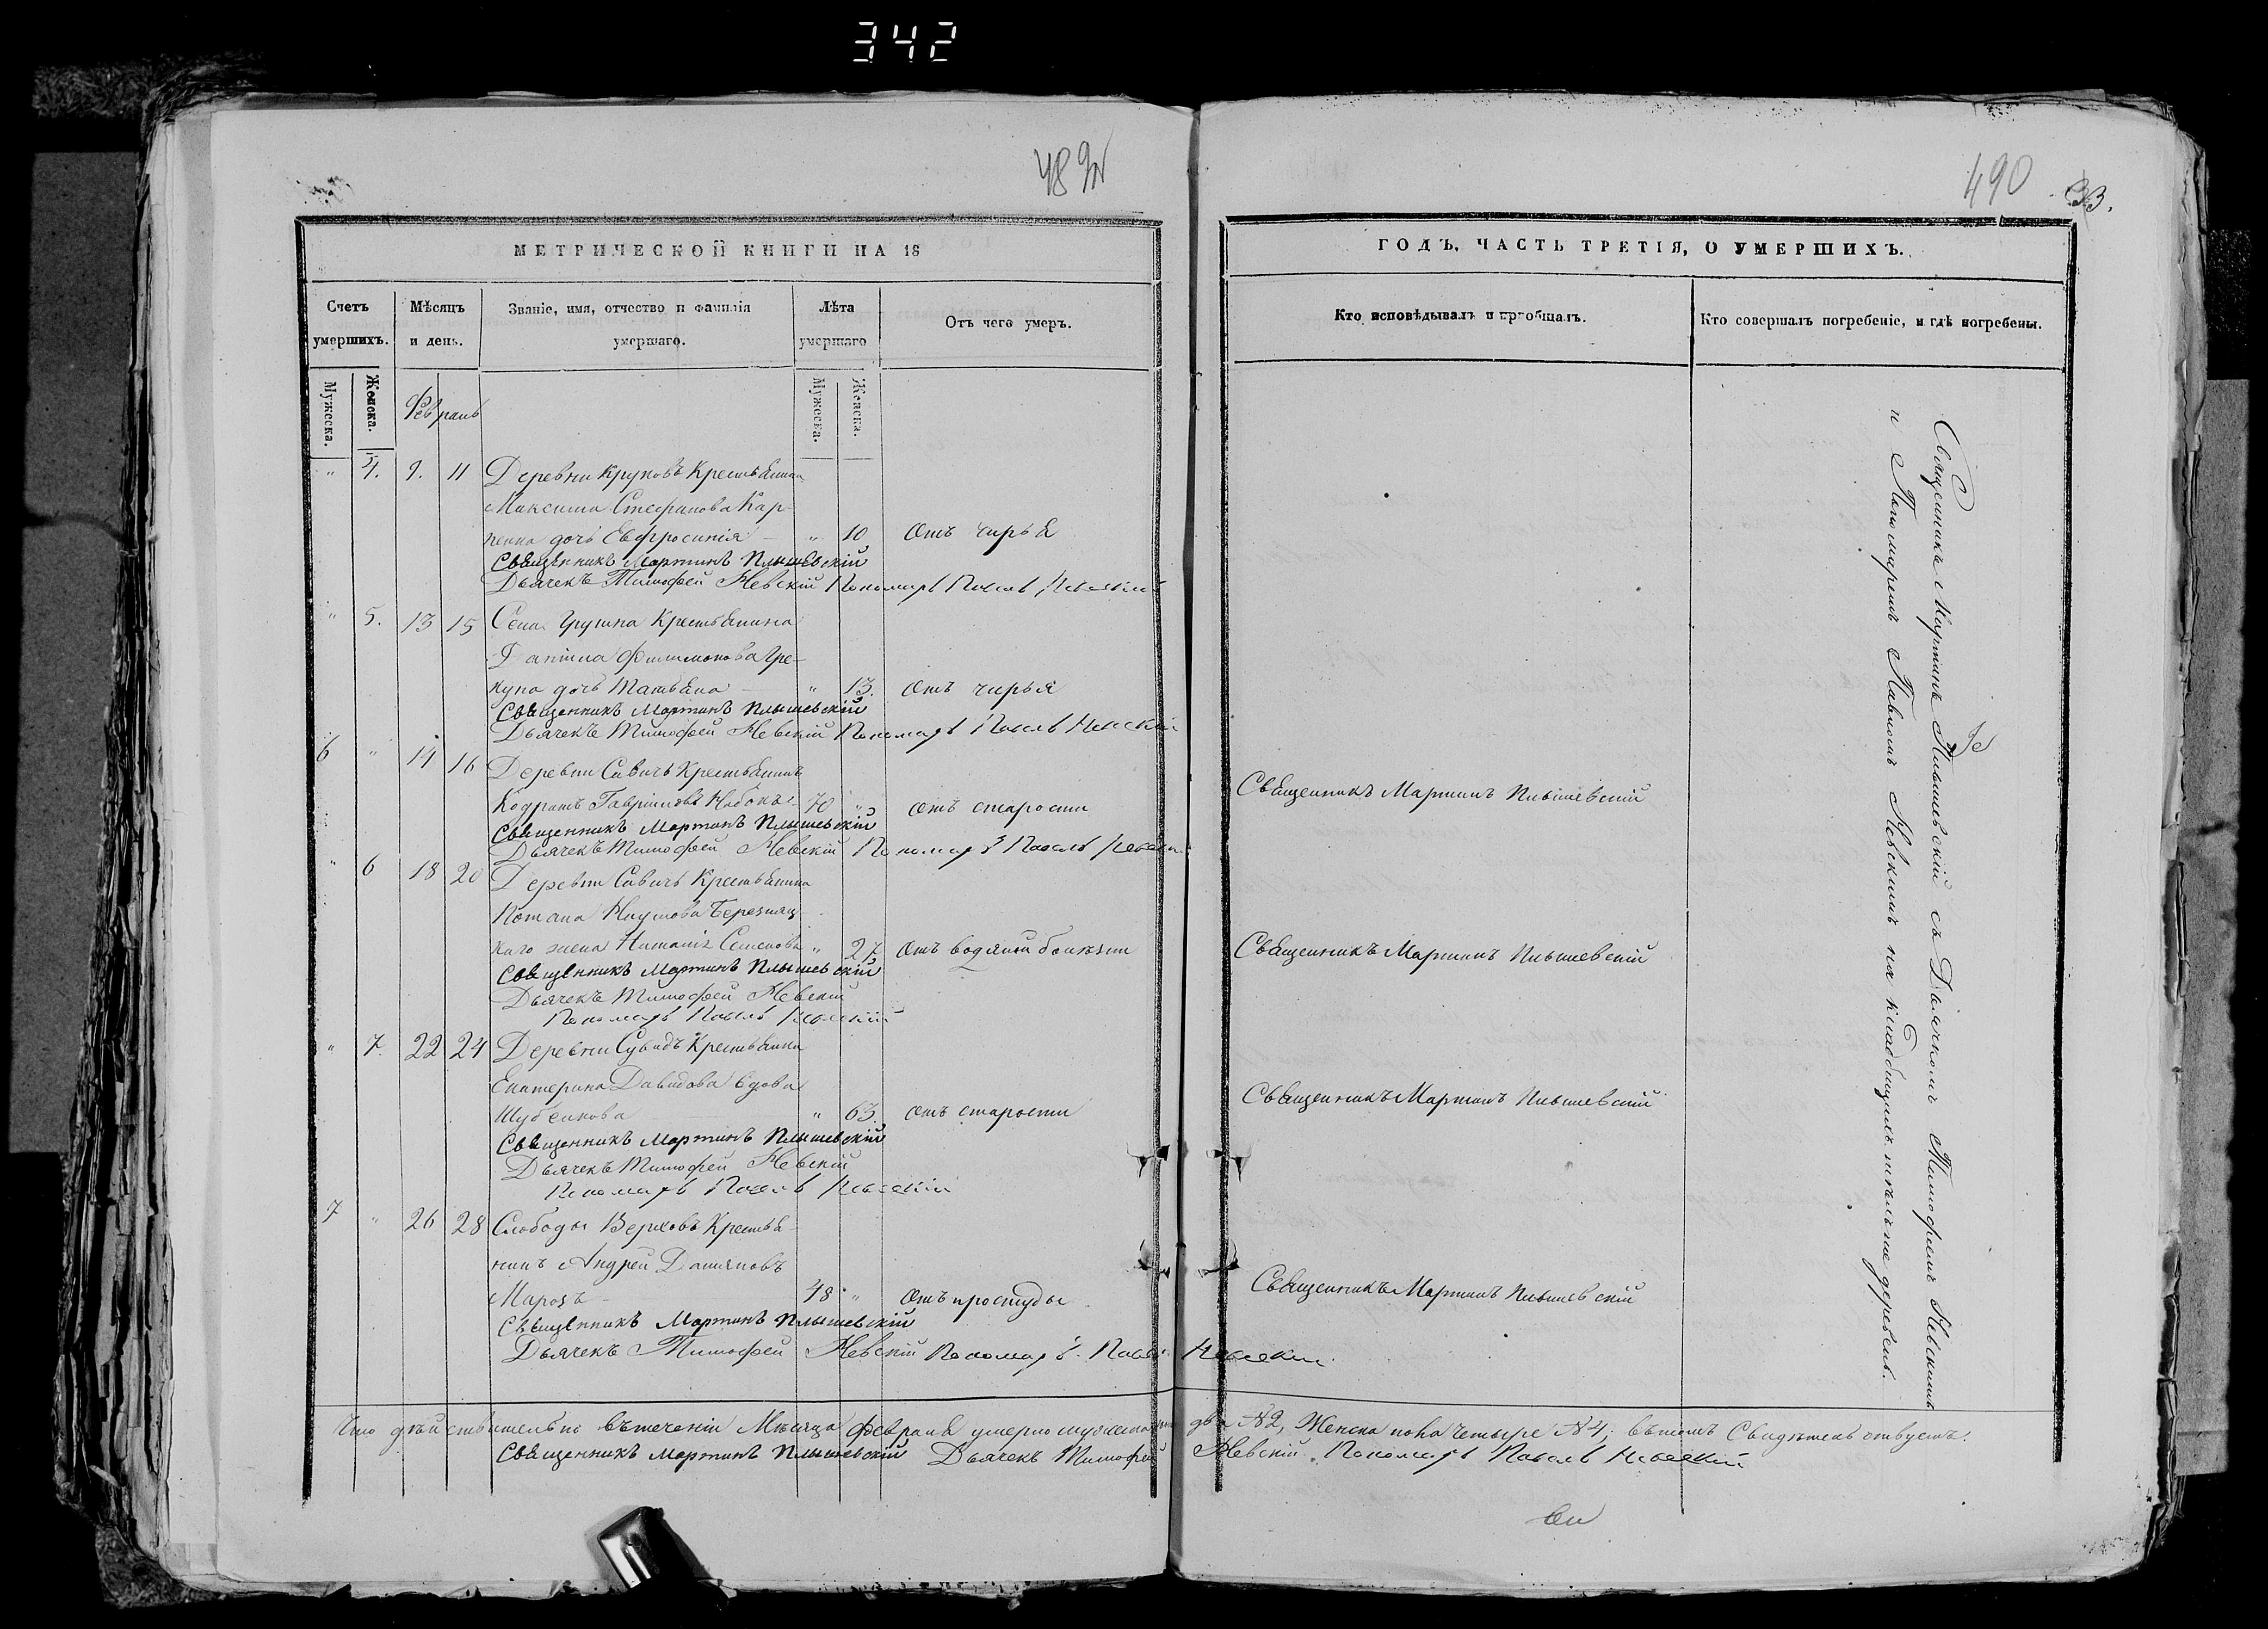 342
489
490
33.
МЕТРИЧЕСКОЙ КНИГИ НА 18
ГОДЪ, ЧАСТЬ ТРЕТІЯ, О УМЕРШИХЪ.
Счетъ умершихъ.
Мѣсяцъ и день.
Званіе, имя, отчество и фамилія умершаго.
Лѣта умершаго
Отъ чего умеръ.
Кто исповѣдывалъ и пріобщалъ.
Кто совершалъ погребеніе, и гдѣ погребены.
Мужеска.
Женска.
Февраль
Мужеска.
Женска.
" 4. 9. 11 Деревни Круковъ Крестьянина
Максима Стефанова Кар-
пенка дочь Евфросинія — " 10 Отъ чирья
Священникъ Мартинъ Плышевскій
Дьячекъ Тимофей Невскій Пономарь Павелъ Невскій
" 5. 13 15 Села Крестьянина
Филимонова Гре-
кула дочь Татьяна — " 13. Отъ чирья
Священникъ Мартинъ Плышевскій
Дьячекъ Тимофей Невскій Пономарь Павелъ Невскій
6 " 14 16 Деревни Савичъ Крестьянинъ
Кодратъ Гавриловъ 70 " Отъ старости
Священникъ Мартинъ Плышевскій
Священникъ Мартинъ Плышевскій
Дьячекъ Тимофей Невскій Пономарь Павелъ Невскій
" 6 18 20 Деревни Савичъ Крестьянина
Потапа Наумова
жена Семенова " 27 Отъ водяной болѣзни
Священникъ Мартинъ Плышевскій
Священникъ Мартинъ Плышевскій
Дьячекъ Тимофей Невскій
Пономарь Павелъ Невскій
" 7. 22 24 Деревни Сувидъ Крестьянка
Екатерина Давидова вдова
Шубенкова " 63. отъ старости
Священникъ Мартинъ Плышевскій
Священникъ Мартинъ Плышевскій
Дьячекъ Тимофей Невскій
Пономарь Павелъ Невскій
7 " 26 28 Слободы Верховъ Крестья-
нинъ Андрей Даміановъ
Марозъ — 48 " Отъ простуды
Священникъ Мартинъ Плышевскій
Священникъ Мартинъ Плышевскій
Дьячекъ Тимофей Невскій Пономарь Павелъ Невскій
Священникъ Мартинъ Плышевскій съ Дьячкомъ Тимофеемъ Невскимъ
и Пономаремъ Павломъ Невскимъ на кладбищахъ тѣхъ же деревень.
Что дѣйствительно въ теченіи Мѣсяца Февраля умерло мужеска два №2, Женска пола четыре №4; въ томъ Свидѣтельствуемъ.
Священникъ Мартинъ Плышевскій Дьячекъ Тимофей Невскій Пономарь Павелъ Невскій